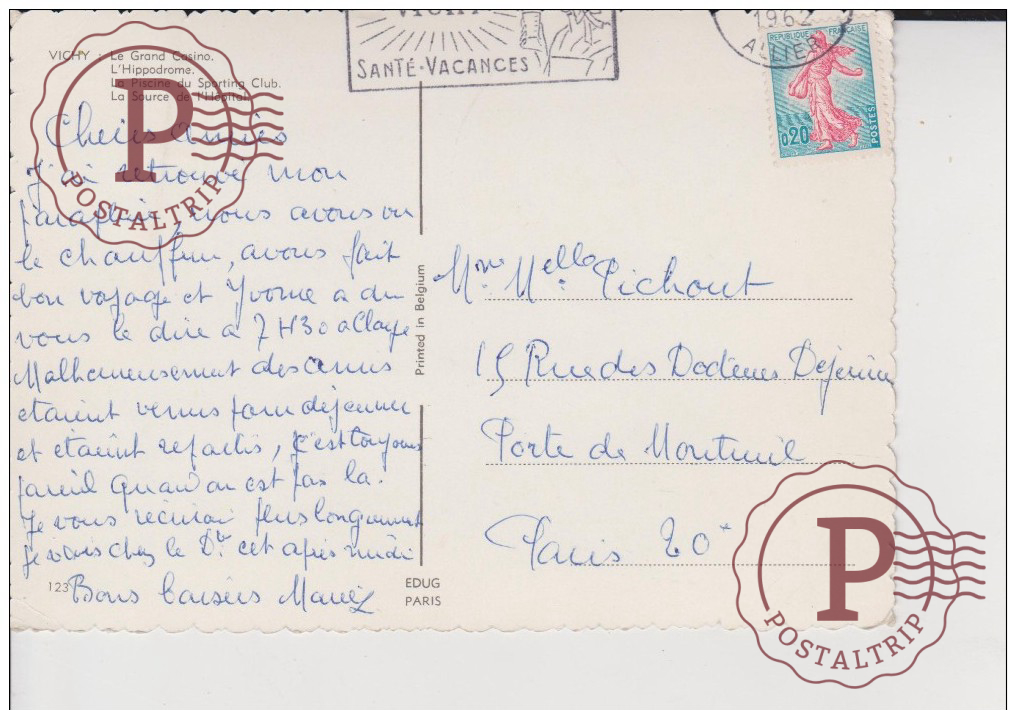 VICHY : Le Grand Casino.
L'Hippodrome.
La Piscine du Sporting Club.
La Source de l'Hôpital.
VICHY
SANTÉ-VACANCES
1962
ALLIER
REPUBLIQUE FRANÇAISE
0,20
POSTES
Chères amies
J'ai retrouvé mon
parapluie, nous avons vu
le chauffeur, avons fait
bon voyage et Yvonne a du
vous le dire a 7 H30
Malheureusement des amis
etaient venus pour déjeuner
et étaient repartis, c'est toujours
pareil quand on est pas la.
Je vous plus longuement
je vais chez le Dr. cet après midi
Bons baisers
Mme Melle Pichout
15 Rue des Dejerine
Porte de Montreuil
Paris 20e
Printed in Belgium
123
EDUG
PARIS
P
POSTALTRIP
P
POSTALTRIP